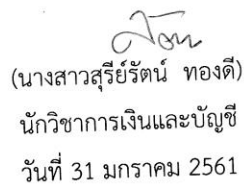 (นางสาวสุรีย์รัตน์ ทองดี)
นักวิชาการเงินและบัญชี
วันที่ 31 มกราคม 2561